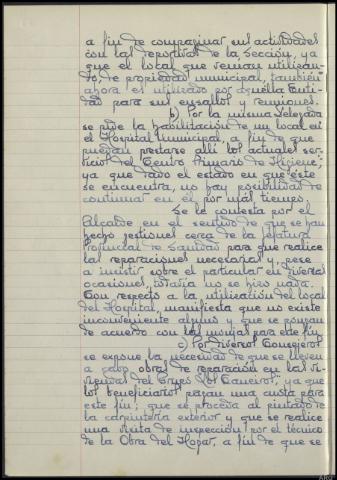 a fin de compaginar sus actividades
con las deportivas de la Sección, ya
que el local que venían utilizan-
do, de propiedad municipal, también
ahora es utilizado por aquella Enti-
dad para sus ensallos y reuniones.
b) Por la misma Delegada
se pide la habilitación de un local en
el Hospital municipal, a fin de que
puedan prestarse allí los actuales ser-
vicios del Centro Primario de Higiene;
ya que dado el estado en que éste
se encuentra, no hay posibilidad de
continuar en él por más tiempo.
Se le contesta por el
Alcalde en el sentido de que se han
hecho gestiones cerca de la Jefatura
Provincial de Sanidad para que realice
las reparaciones necesarias y, pese
a insistir sobre el particular en diversas
ocasiones, todavía no se hizo nada.
Con respecto a la utilización del local
del Hospital, manifiesta que no existe
inconveniente alguno y que se pongan
de acuerdo con las monjas para este fin.
c) Por diversos Consejeros
se expone la necesidad de que se lleven
a cabo obras de reparación en las vi-
viendas del Grupo
ya que
los beneficiarios pagan una cuota para
este fin; que se proceda al pintado de
la carpintería exterior y que se realice
una visita de inspección por el técnico
de la Obra del Hogar, a fin de que se